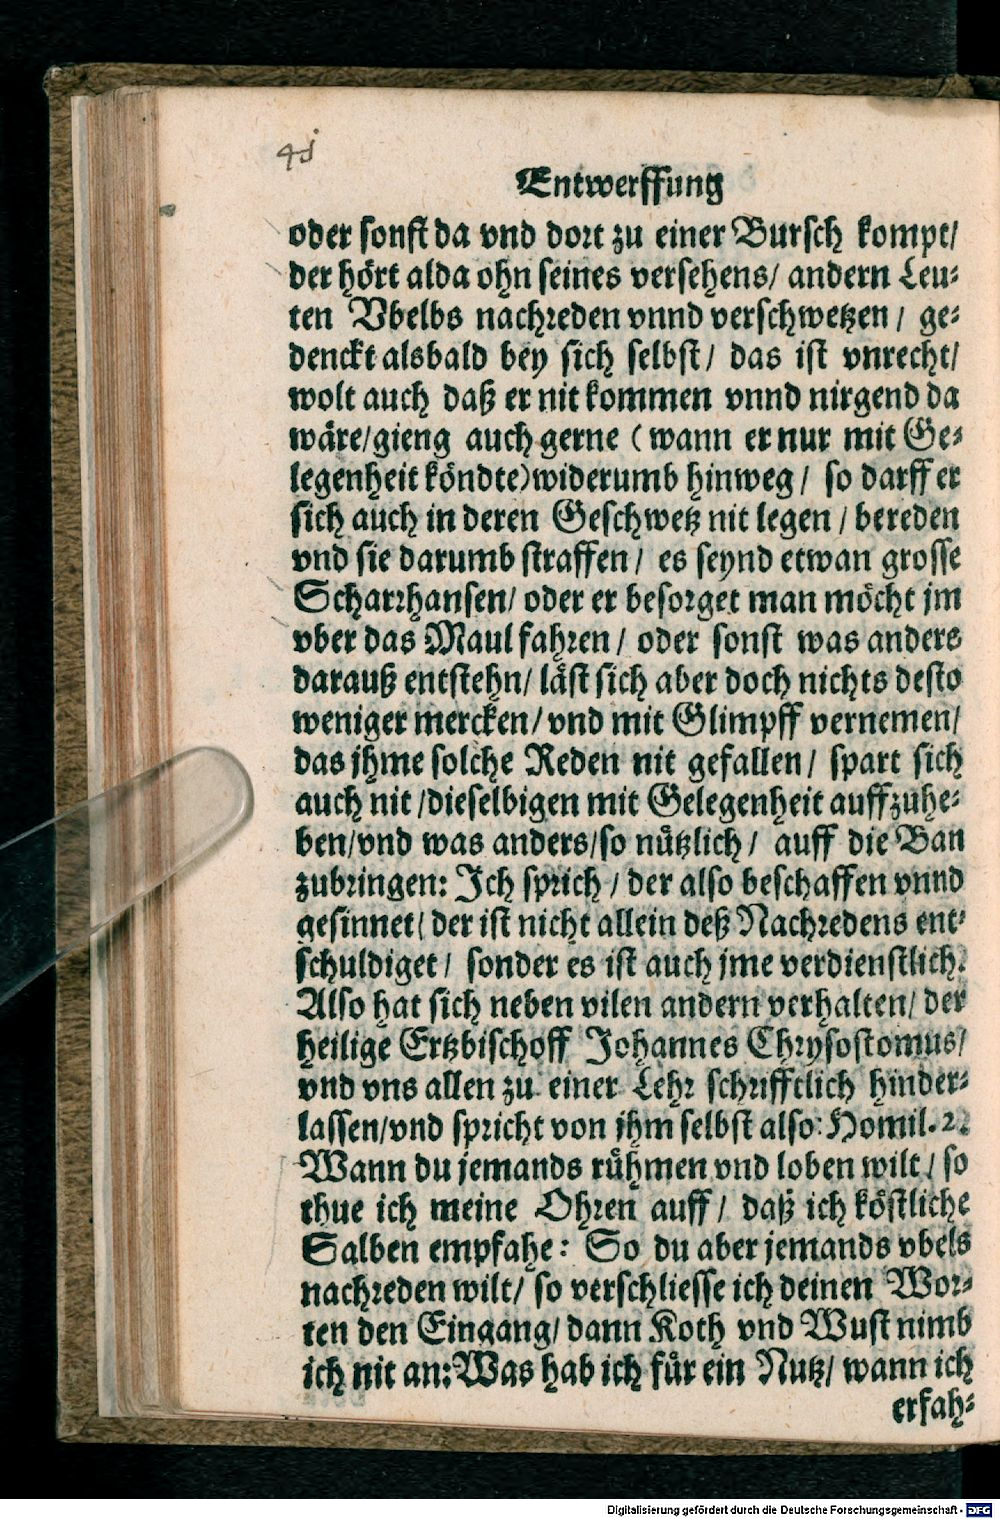 41
Entwerffung
oder sonst da vnd dort zu einer Bursch kompt/
der hört alda ohn seines versehens/ andern Leu-
ten Vbelbs nachreden vnnd verschwetzen / ge-
denckt alsbald bey sich selbst/ das ist vnrecht/
wolt auch daß er nit kommen vnnd nirgend da
wäre/gieng auch gerne ( wann er nur mit Ge-
legenheit köndte)widerumb hinweg / so darff er
sich auch in deren Geschwetz nit legen / bereden
vnd sie darumb straffen / es seynd etwan grosse
Scharrhansen/ oder er besorget man möcht jm
vber das Maul fahren / oder sonst was anders
darauß entstehn/ läst sich aber doch nichts desto
weniger mercken/ vnd mit Glimpff vernemen/
das jhme solche Reden nit gefallen / spart sich
auch nit /dieselbigen mit Gelegenheit auffzuhe-
ben/vnd was anders/so nützlich / auff die Ban
zubringen: Ich sprich / der also beschaffen vnnd
gesinnet/ der ist nicht allein deß Nachredens ent-
schuldiget / sonder es ist auch jme verdienstlich.
Also hat sich neben vilen andern verhalten/ der
heilige Ertzbischoff Johannes Chrysostomus/
vnd vns allen zu einer Lehr schrifftlich hinder-
lassen/vnd spricht von jhm selbst also: Homil. 2.
Wann du jemands rühmen vnd loben wilt / so
thue ich meine Ohren auff / daß ich köstliche
Salben empfahe: So du aber jemands vbels
nachreden wilt/ so verschliesse ich deinen Wor-
ten den Eingang/ dann Koth vnd Wust nimb
ich nit an: Was hab ich für ein Nutz/ wann ich
erfah-
Digitalisierung gefördert durch die Deutsche Forschungsgemeinschaft - DFG